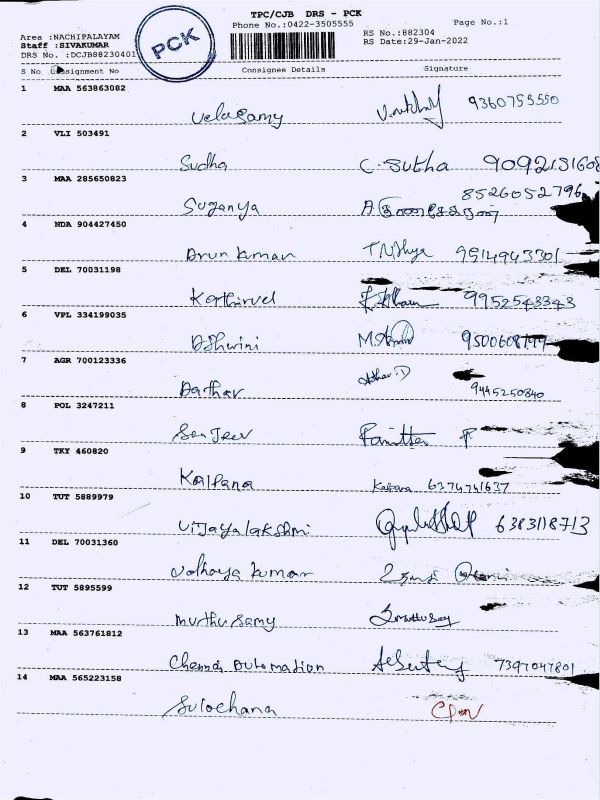 TPC/CJB DRS - PCK
Phone No.:0422-3505555 Page No.:1
Area :NACHIPALAYAM RS No.:882304
Staff :SIVAKUMAR RS Date:29-Jan-2022
DRS No. :DCJB88230401
PCK
S No Consignment No Consignee Details Signature
1 MAA 563863082
Velusamy 9360755550
2 VLI 503491
Sudha C. Sutha 9092151608
3 MAA 285650823
8526052796
Suganya A குணசேகரன்
4 NDA 904427450
Arun kumar 9514943301
5 DEL 70031198
Kathirvel 9952543343
6 VPL 334199035
Dshwini
7 AGR 700123336
Dathar 9445250840
8 POL 3247211
Sanjeev
9 TKY 460820
Kalpana 6374741637
10 TUT 5889979
Vijayalakshmi 6383118713
11 DEL 70031360
kumar
12 TUT 5895599
Muthu samy
13 MAA 563761812
Automation 7397047801
14 MAA 565223158
Sulochana